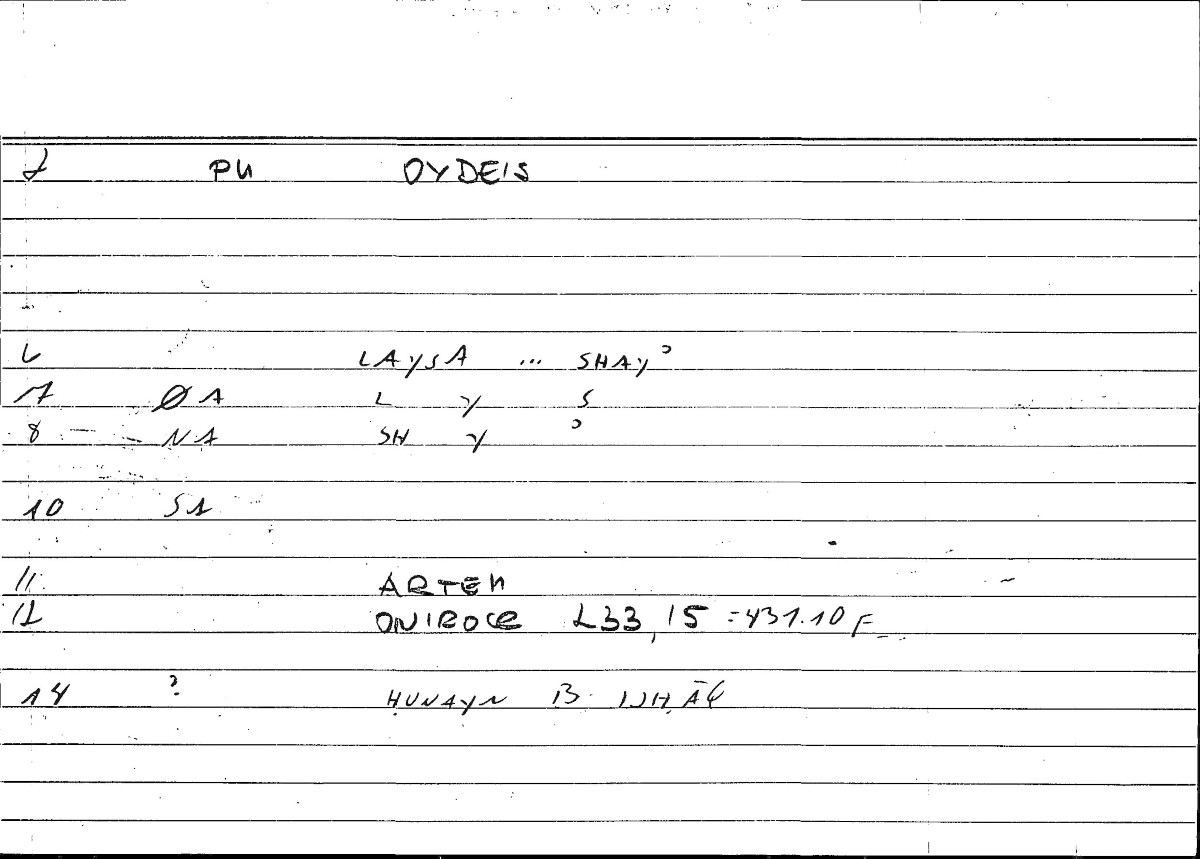 2 PN OYDEIS
6 LAYSA ... SHAYʾ
7 ØA L Y S
8 NA SH Y ʾ
10 SA
11 ARTEM
12 ONIROCR 233,15 = 431.10 F
14 ? ḤUNAYN B. ISḤĀQ